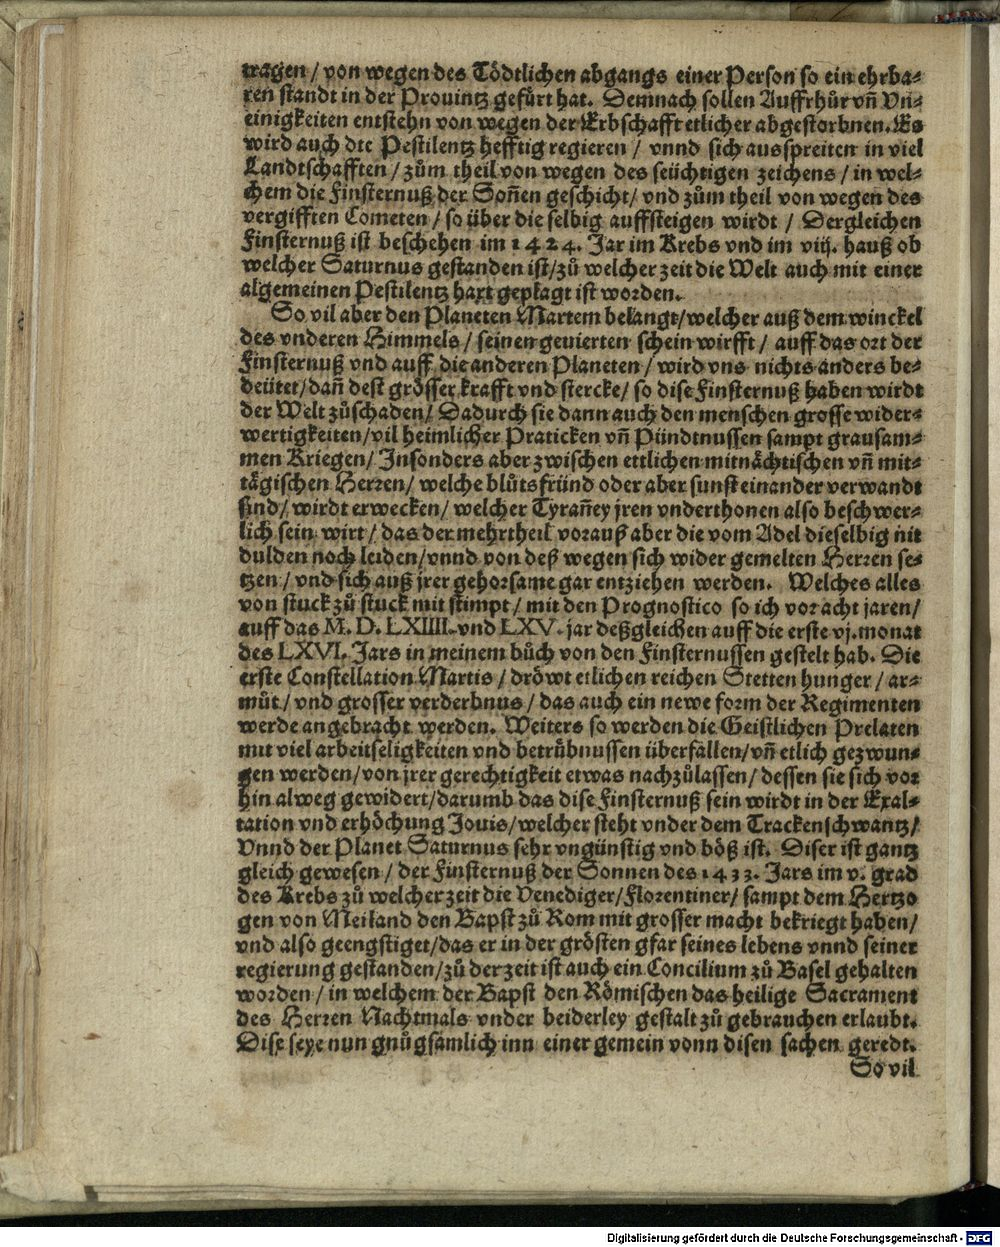 tragen / von wegen des Tödtlichen abgangs einer Person so ein ehrba⸗
ren standt in der Prouintz gefürt hat. Demnach sollen Auffrhůr vñ Vn⸗
einigkeiten entstehn von wegen der Erbschafft etlicher abgestorbnen. Es
wird auch die Pestilentz hefftig regieren / vnnd sich ausspreiten in viel
Landtschafften / zům theil von wegen des seüchtigen zeichens / in wel⸗
chem die Finsternuß der Soñen geschicht / vnd zům theil von wegen des
vergifften Cometen / so über die selbig auffsteigen wirdt / Dergleichen
Finsternuß ist beschehen im 1424. Jar im Krebs vnd im viij. hauß ob
welcher Saturnus gestanden ist / zů welcher zeit die Welt auch mit einer
algemeinen Pestilentz hart geplagt ist worden.
So vil aber den Planeten Martem belangt / welcher auß dem winckel
des vnderen Himmels / seinen geuierten schein wirfft / auff das ort der
Finsternuß vnd auff die anderen Planeten / wird vns nichts anders be⸗
deütet / dañ dest grösser krafft vnd stercke / so dise Finsternuß haben wirdt
der Welt zůschaden / Dadurch sie dann auch den menschen grosse wider⸗
wertigkeiten / vil heimlicher Praticken vñ Pündtnussen sampt grausam⸗
men Kriegen / Insonders aber zwischen ettlichen mitnächtischen vñ mit⸗
tägischen Herren / welche blůtsfründ oder aber sunst einander verwandt
sind / wirdt erwecken / welcher Tyrañey jren vnderthonen also beschwer⸗
lich sein wirt / das der mehrtheil vorauß aber die vom Adel dieselbig nit
dulden noch leiden / vnnd von deß wegen sich wider gemelten Herren se⸗
tzen / vnd sich auß jrer gehorsame gar entziehen werden. Welches alles
von stuck zů stuck mit stimpt / mit den Prognostico so ich vor acht jaren /
auff das M. D. LXIIII. vnd LXV. jar deßgleichen auff die erste vj. monat
des LXVI. Jars in meinem bůch von den Finsternussen gestelt hab. Die
erste Constellation Martis / dröwt etlichen reichen Stetten hunger / ar⸗
můt / vnd grosser verderbnus / das auch ein newe form der Regimenten
werde angebracht werden. Weiters so werden die Geistlichen Prelaten
mit viel arbeitseligkeiten vnd betrůbnussen überfallen / vñ etlich gezwun⸗
gen werden / von jrer gerechtigkeit etwas nachzůlassen / dessen sie sich vor
hin alweg gewidert / darumb das dise Finsternuß sein wirdt in der Exal⸗
tation vnd erhöchung Jouis / welcher steht vnder dem Trackenschwantz /
Vnnd der Planet Saturnus sehr vngünstig vnd böß ist. Diser ist gantz
gleich gewesen / der Finsternuß der Sonnen des 1433. Jars im v. grad
des Krebs zů welcher zeit die Venediger / Florentiner / sampt dem Hertzo
gen von Meiland den Bapst zů Rom mit grosser macht bekriegt haben /
vnd also geengstiget / das er in der grösten gfar seines lebens vnnd seiner
regierung gestanden / zů der zeit ist auch ein Concilium zů Basel gehalten
worden / in welchem der Bapst den Römischen das heilige Sacrament
des Herren Nachtmals vnder beiderley gestalt zů gebrauchen erlaubt.
Dise seye nun gnůgsamlich inn einer gemein vonn disen sachen geredt.
So vil
Digitalisierung gefördert durch die Deutsche Forschungsgemeinschaft - DFG